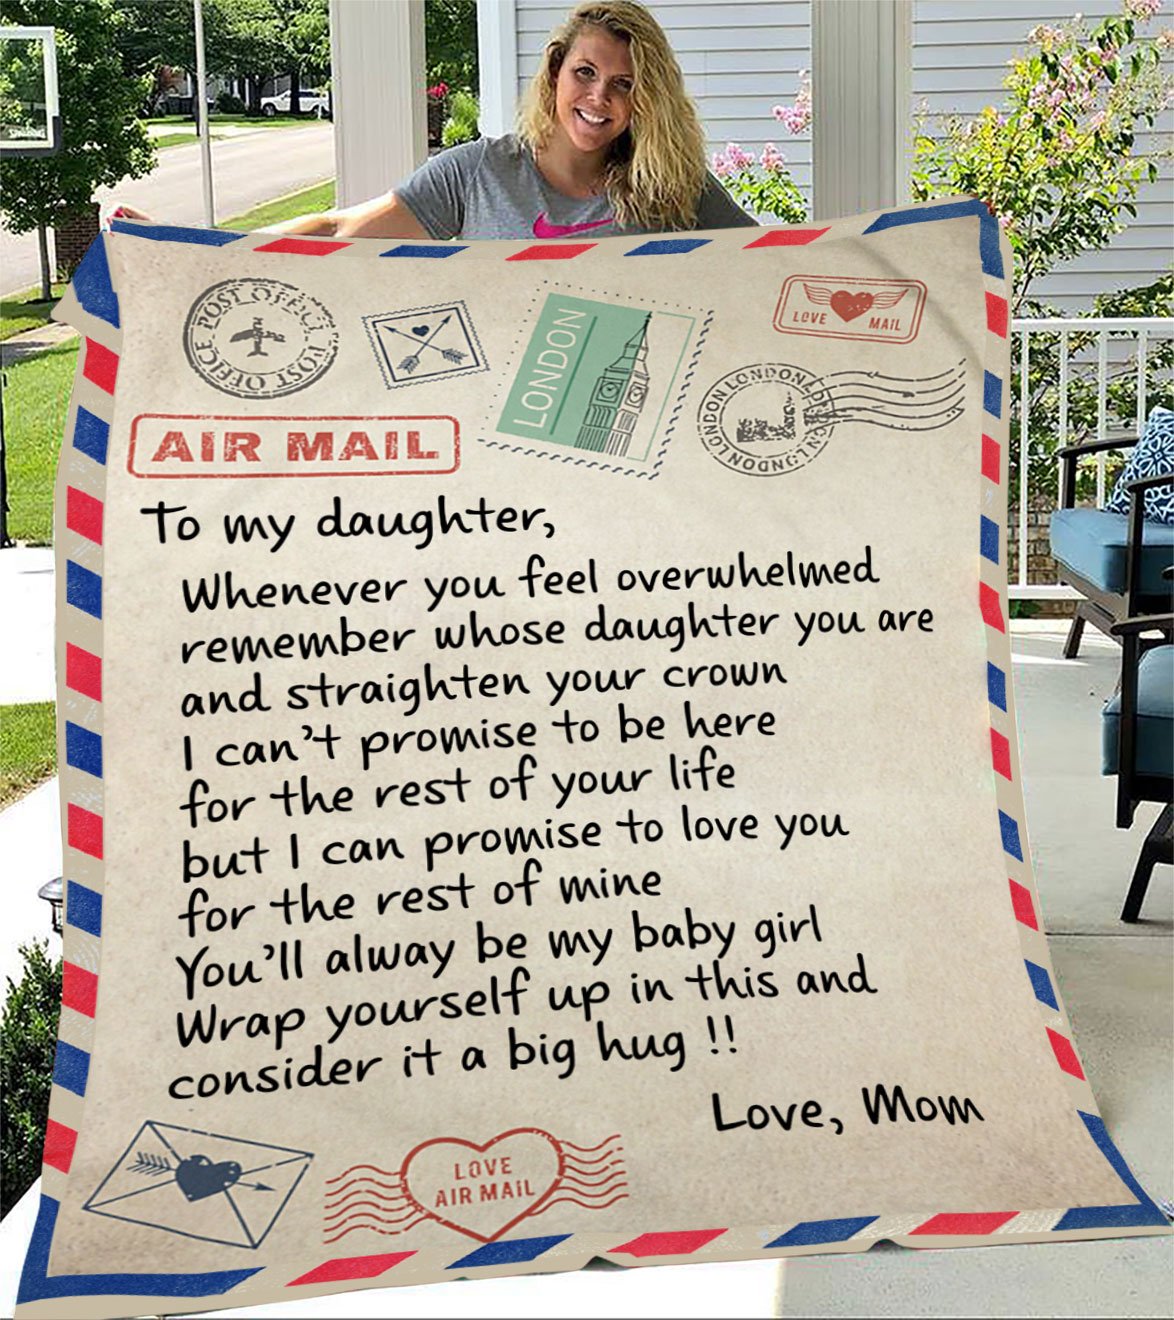 POST OFFICE POST OFFICE
LONDON
LOVE MAIL
LONDON LONDON LONDON LONDON
AIR MAIL
To my daughter,
Whenever you feel overwhelmed
remember whose daughter you are
and straighten your crown
I can't promise to be here
for the rest of your life
but I can promise to love you
for the rest of mine
You'll alway be my baby girl
Wrap yourself up in this and
consider it a big hug !!
Love, Mom
LOVE
AIR MAIL